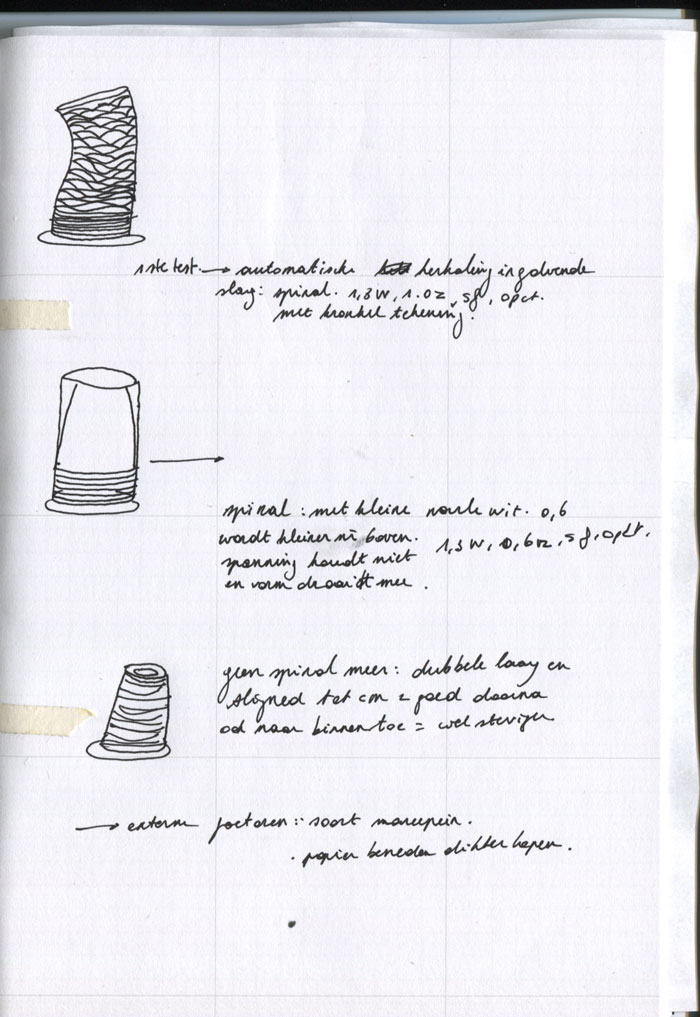 1ste test. → automatische herhaling in golvende
slag: spiral. 1,3 W, 1.0z, sf, opct.
met kronkel tekening.
spiral: met kleine naulde wit. 0,6
wordt kleiner nr boven. 1,3 W, 0,6z, sf, opct.
spanning houdt niet
en vorm draait mee.
geen spiral meer: dubbele laag en
aligned tot cm = goed daarna
naar binnen toe = wel steviger
→ externe factoren: soort marsepein.
. papier beneden dichter